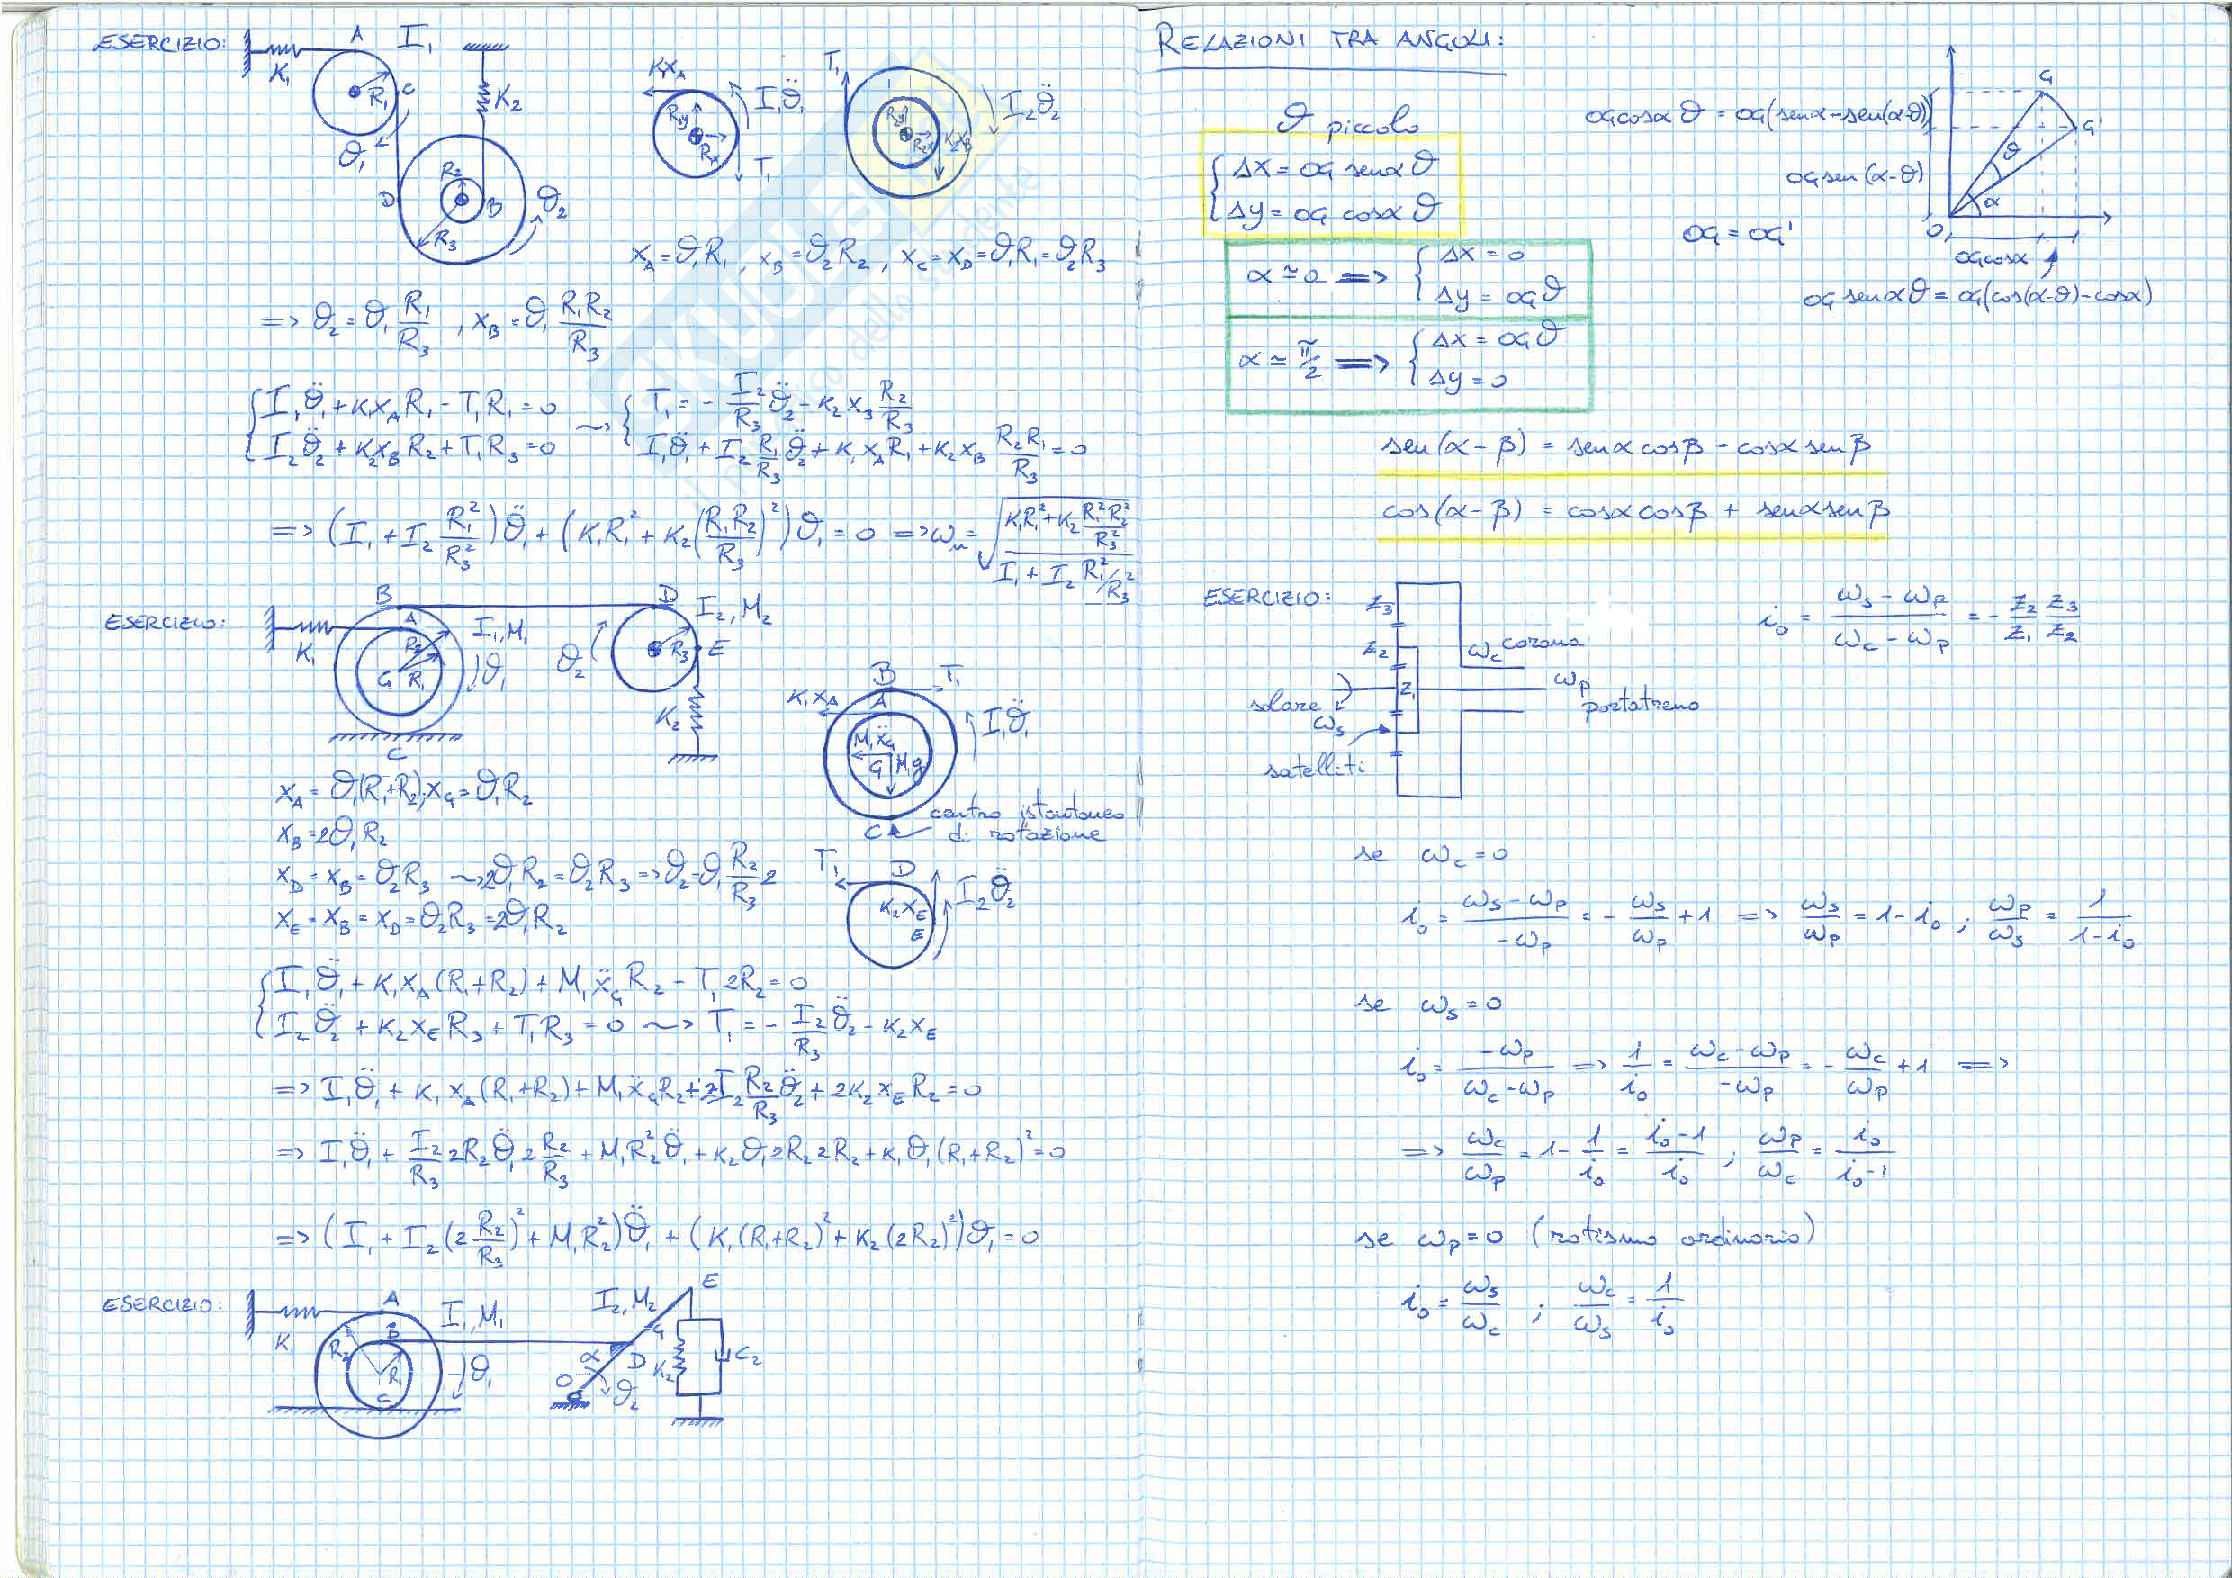 ESERCIZIO:
A
I₁
K₁
R₁
C
K₂
ϑ₁
R₂
D
B
ϑ₂
R₃
K₁x_A
I₁ϑ̈₁
R₁y
R₁x
T₁
T₁
I₂ϑ̈₂
R₂y
R₂x
K₂x_B
x_A = ϑ₁R₁ , x_B = ϑ₂R₂ , x_C = x_D = ϑ₁R₁ = ϑ₂R₃
=> ϑ₂ = ϑ₁ R₁/R₃ , x_B = ϑ₁ R₁R₂/R₃
{ I₁ϑ̈₁ + K₁x_A R₁ - T₁R₁ = 0 ⤳ { T₁ = - I₂/R₃ ϑ̈₂ - K₂ x_B R₂/R₃
I₂ϑ̈₂ + K₂x_B R₂ + T₁R₃ = 0 I₁ϑ̈₁ + I₂ R₁/R₃ ϑ̈₂ + K₁x_A R₁ + K₂x_B R₂R₁/R₃ = 0
=> (I₁ + I₂ R₁²/R₃²) ϑ̈₁ + (K₁R₁² + K₂(R₁R₂/R₃)²) ϑ₁ = 0 => ωₙ = √((K₁R₁² + K₂ R₁²R₂²/R₃²)/(I₁ + I₂ R₁²/R₃²))
ESERCIZIO:
B
A
D
I₂, M₂
K₁
R₂
I₁, M₁
G
R₁
ϑ₁
ϑ₂
R₃
E
K₂
C
B
T₁
K₁x_A
A
I₁ϑ̈₁
M₁ẍ_G
G
M₁g
C
centro istantaneo
di rotazione
x_A = ϑ₁(R₁+R₂); x_G = ϑ₁R₂
x_B = 2ϑ₁R₂
x_D = x_B = ϑ₂R₃ ⤳ 2ϑ₁R₂ = ϑ₂R₃ => ϑ₂ = ϑ₁ R₂/R₃ 2
x_E = x_B = x_D = ϑ₂R₃ = 2ϑ₁R₂
T₁
D
I₂ϑ̈₂
K₂x_E
E
{ I₁ϑ̈₁ + K₁x_A(R₁+R₂) + M₁ẍ_G R₂ - T₁2R₂ = 0
I₂ϑ̈₂ + K₂x_E R₃ + T₁R₃ = 0 ⤳ T₁ = - I₂/R₃ ϑ̈₂ - K₂x_E
=> I₁ϑ̈₁ + K₁x_A(R₁+R₂) + M₁ẍ_G R₂ + 2I₂ R₂/R₃ ϑ̈₂ + 2K₂x_E R₂ = 0
=> I₁ϑ̈₁ + I₂/R₃ 2R₂ϑ̈₁ 2 R₂/R₃ + M₁R₂²ϑ̈₁ + K₂ϑ₁2R₂2R₂ + K₁ϑ₁(R₁+R₂)² = 0
=> (I₁ + I₂(2 R₂/R₃)² + M₁R₂²) ϑ̈₁ + (K₁(R₁+R₂)² + K₂(2R₂)²) ϑ₁ = 0
ESERCIZIO:
A
I₁, M₁
K
B
R₂
R₁
C
ϑ₁
I₂, M₂
E
G
α
D
K₂
C₂
O
ϑ₂
RELAZIONI TRA ANGOLI:
ϑ piccolo
{ Δx = OG senα ϑ
Δy = OG cosα ϑ
α ≃ 0 => { Δx = 0
Δy = OG ϑ
α ≃ π/2 => { Δx = OG ϑ
Δy = 0
OG cosα ϑ = OG(senα - sen(α-ϑ))
G
G'
OG sen(α-ϑ)
ϑ
α
O
OG = OG'
OG cosα
OG senα ϑ = OG(cos(α-ϑ) - cosα)
sen(α-β) = senα cosβ - cosα senβ
cos(α-β) = cosα cosβ + senα senβ
ESERCIZIO:
Z₃
Z₂
Z₁
ω_c corona
ω_p
portatreno
solare
ω_s
satelliti
i₀ = (ω_s - ω_p)/(ω_c - ω_p) = - Z₂/Z₁ Z₃/Z₂
se ω_c = 0
i₀ = (ω_s - ω_p)/(-ω_p) = - ω_s/ω_p + 1 => ω_s/ω_p = 1 - i₀ ; ω_p/ω_s = 1/(1-i₀)
se ω_s = 0
i₀ = -ω_p/(ω_c - ω_p) => 1/i₀ = (ω_c - ω_p)/(-ω_p) = - ω_c/ω_p + 1 =>
=> ω_c/ω_p = 1 - 1/i₀ = (i₀-1)/i₀ ; ω_p/ω_c = i₀/(i₀-1)
se ω_p = 0 (rotismo ordinario)
i₀ = ω_s/ω_c ; ω_c/ω_s = 1/i₀